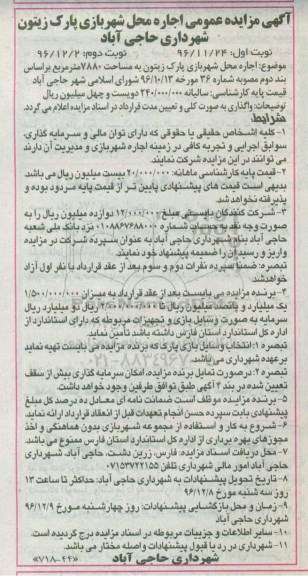 آگهی مزایده عمومی اجاره محل شهربازی پارک زیتون
شهرداری حاجی آباد
نوبت اول: ۹۶/۱۱/۲۴ نوبت دوم: ۹۶/۱۲/۲
موضوع: اجاره محل شهربازی پارک زیتون به مساحت ۷۸۸۰مترمربع براساس
بند دوم مصوبه شماره ۳۶ مورخه ۹۶/۱۰/۱۳ شورای اسلامی شهر حاجی آباد
قیمت پایه کارشناسی: سالیانه ۲۴۰/۰۰۰/۰۰۰ دویست و چهل میلیون ریال
توضیحات: واگذاری به صورت کلی و تعیین مدت قرارداد در اسناد مزایده اعلام می گردد.
شرایط
۱- کلیه اشخاص حقیقی یا حقوقی که دارای توان مالی و سرمایه گذاری،
سوابق اجرایی و تجربه کافی در زمینه اجاره شهربازی و مدیریت آن دارند
می توانند در این مزایده شرکت نمایند.
۲- قیمت پایه کارشناسی ماهانه: ۲۰/۰۰۰/۰۰۰ بیست میلیون ریال می باشد.
بدیهی است قیمت های پیشنهادی پایین تر از قیمت پایه مردود بوده و
پذیرفته نخواهد شد.
۳- شرکت کنندگان بایستی مبلغ ۱۲/۰۰۰/۰۰۰ دوازده میلیون ریال را به
صورت وجه نقد به حساب شماره ۰۱۰۸۸۶۷۶۸۸۰۰۰ نزد بانک ملی شعبه
حاجی آباد بنام شهرداری حاجی آباد به عنوان سپرده شرکت در مزایده
واریز و رسید آن را ضمیمه پیشنهاد خود نمایند.
تبصره: ضمنا سپرده نفرات دوم و سوم بعد از عقد قرارداد با نفر اول آزاد
خواهد شد.
۴- برنده مزایده می بایست بعد از عقد قرارداد به میزان ۱/۵۰۰/۰۰۰/۰۰۰
یک میلیارد و پانصد میلیون ریال تا ۲/۰۰۰/۰۰۰/۰۰۰ ریال دو میلیارد ریال
سرمایه به صورت وسایل بازی و تجهیزات مربوطه که دارای استاندارد از
اداره کل استاندارد استان فارس داشته باشد تأمین نماید.
تبصره ۱: انتخاب وسایل بازی پارک که برنده مزایده می بایست تهیه نماید
برعهده شهرداری می باشد.
تبصره ۲: درصورت تمایل برنده مزایده، امکان سرمایه گذاری بیش از سقف
تعیین شده در بند ۴ آگهی طبق توافق طرفین وجود خواهد داشت.
۵- برنده مزایده موظف است ضمانت نامه ای معادل ده درصد کل مبلغ
پیشنهادی بابت سپرده حسن انجام تعهدات قبل از انعقاد قرارداد ارائه نماید.
۶- شروع به کار و استفاده از مجموعه شهربازی بدون هماهنگی و اخذ
مجوزهای بهره برداری از اداره کل استاندارد استان فارس ممنوع می باشد.
۷- محل دریافت اسناد مزایده: فارس، زرین دشت، حاجی آباد، شهرداری
حاجی آباد امور مالی شهرداری تلفن ۰۷۱۵۳۷۲۲۱۵۵
۸- تاریخ تحویل پیشنهادات به شهرداری حاجی آباد: حداکثر تا ساعت ۱۳
روز سه شنبه مورخ ۹۶/۱۲/۸
۹- زمان و محل بازگشایی پیشنهادات: روز چهارشنبه مورخ ۹۶/۱۲/۹
شهرداری حاجی آباد
۱۰- سایر اطلاعات و جزییات مربوطه در اسناد مزایده درج گردیده است.
۱۱- شهرداری در رد یا قبول پیشنهادات واصله مختار می باشد.
شهرداری حاجی آباد «۷۱۸-۴۴»